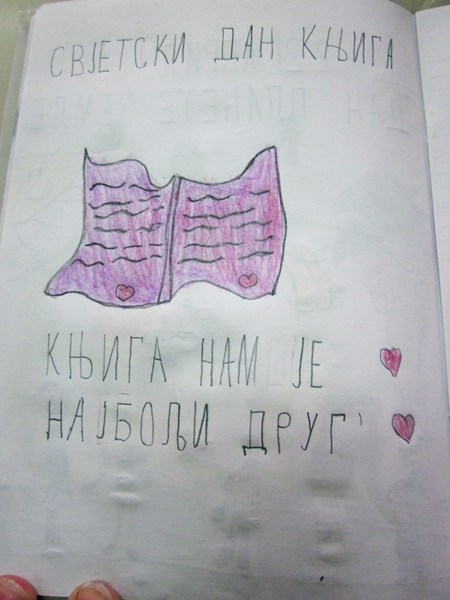 СВЈЕТСКИ ДАН КЊИГА
КЊИГА НАМ ЈЕ
НАЈБОЉИ ДРУГ